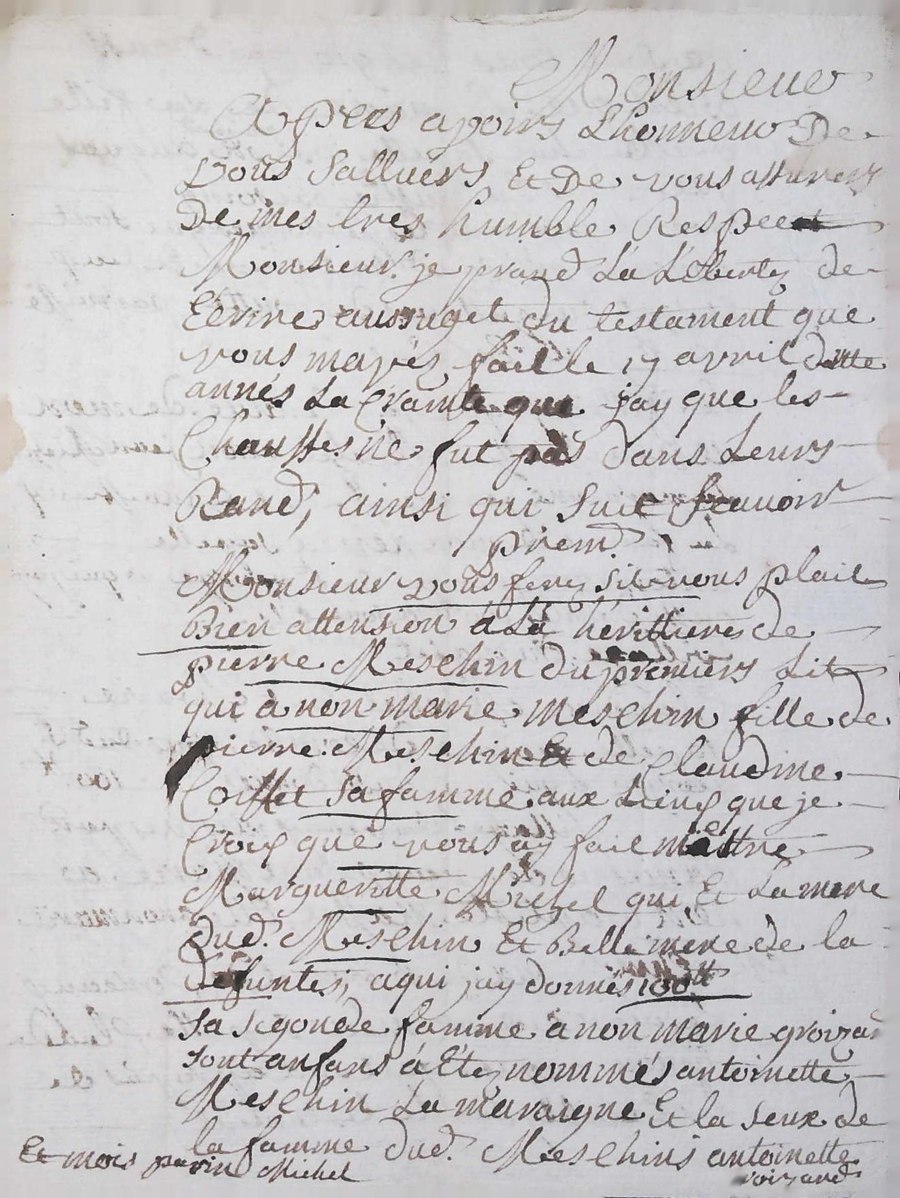 Monsieur
Apers avoirs Lhonneur De
vous Salluers Et De vous assurers
De mes tres humble Respeet
Monsieur je prand La Liberty de
Ecrire aussuget du testament que
vous mavés fait le 17 avril dette
annés La Crainte que jay que les
Chausses ne fut pas dans Leurs
Rand, ainsi qui Suit scavoir
prem.
Monsieur vous fery sil vous plait
Bien attension à La hérittiere de
pierre Meschin du premiers Lit
qui à non marie meschin fille de
pierre Meschin Et de Claudine
Coiffet Sa famme aux Lieux que je
Croix que vous ay fait mettre
Margueritte Michel qui Et La mere
dud. Meschin Et Belle mere de la
defunte, a qui jay donnés 100tt
Sa segonde famme à non marie groizard
Sont anfans à Ety nommés antoinette
Meschin La maraigne Et la seux de
la famme dud. Meschins antoinette
Et mois parin Michel
roizard